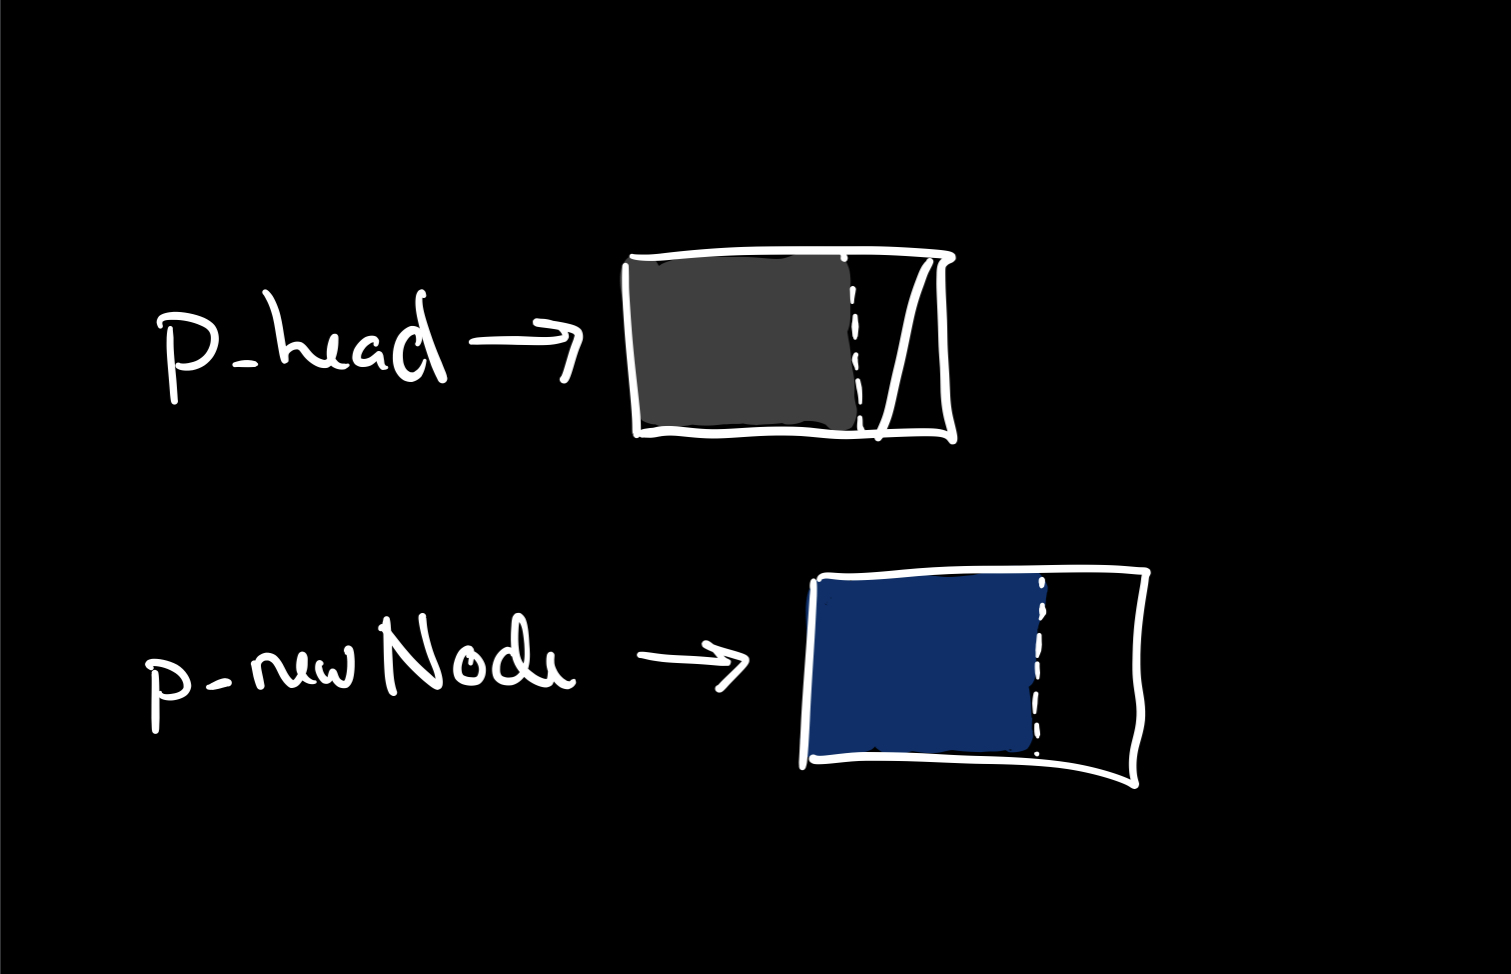 p_head
p_newNode